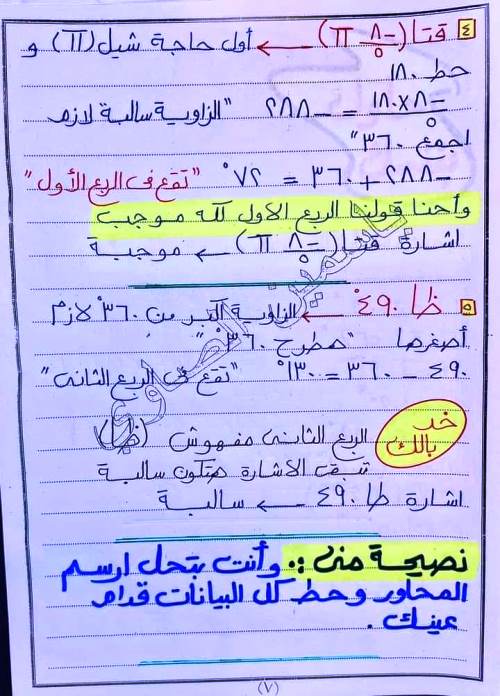 ٤ قتا (−٨/٥ π) ← أول حاجة شيل (π) و
حط ١٨٠
−٨×١٨٠/٥ = −٢٨٨ "الزاوية سالبة لازم
اجمع ٣٦٠"
−٢٨٨ + ٣٦٠ = ٧٢° "تقع فى الربع الأول"
وأحنا قولنا الربع الاول كله موجب
اشارة قتا (−٨/٥ π) ← موجبة
٥ ظا ٤٩٠° ← الزاوية أكبر من ٣٦٠° لازم
أصغرها "هطرح ٣٦٠°"
٤٩٠ − ٣٦٠ = ١٣٠° "تقع فى الربع الثانى"
خد بالك
الربع الثانى مفهوش (ظا)
تبقى الاشارة هتكون سالبة
اشارة ظا ٤٩٠ ← سالبة
نصيحة منى :. وأنت بتحل ارسم
المحاور وحط كل البيانات قدام
عينك .
(٧)